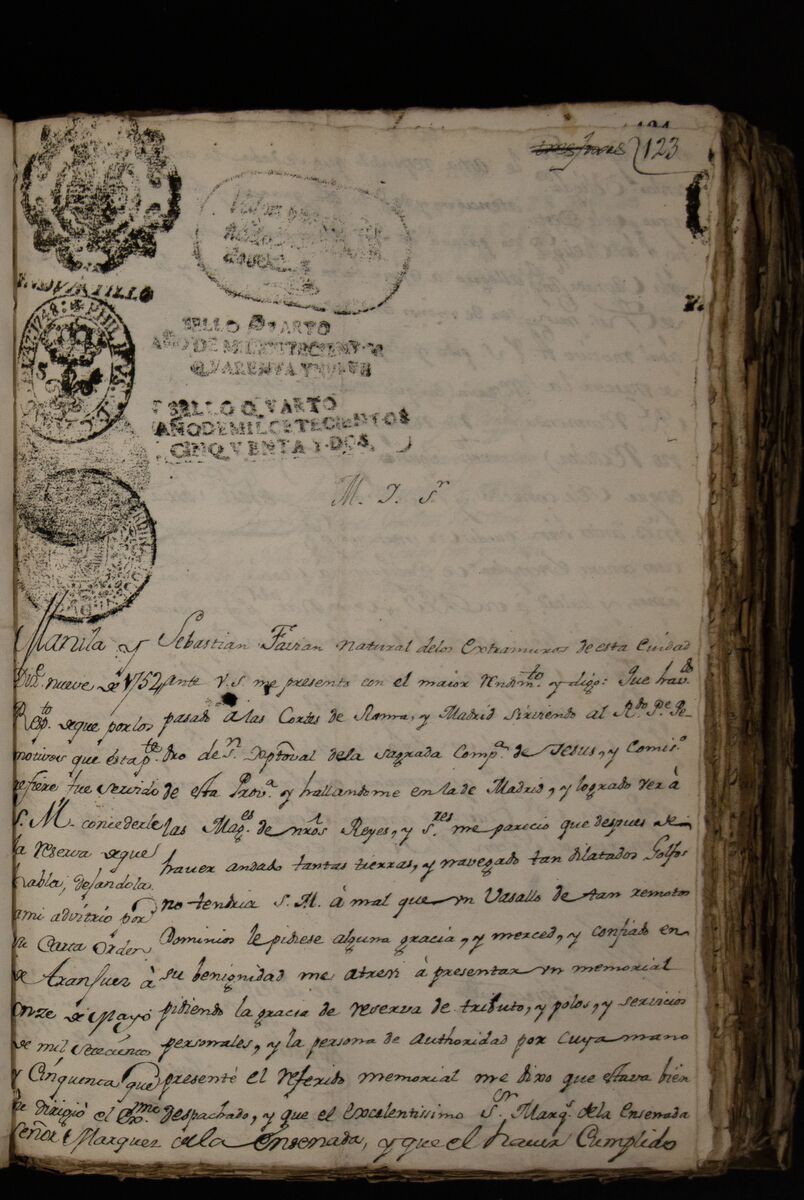 123
UNQUARTILLO
SELLO QVARTO
AÑO DE MIL SETECIENTOS
QVARENTA Y NUEVE
SELLO QVARTO
AÑO DE MIL CETECIENTOS
CINQVENTA Y DOS
M. I. Sr
Sebastian Favian natural delos Extramuros de esta Ciudad
ante V.S. me presento con el maior rendimto. y digo: Que havdo
pasado à las Cortes de Roma, y Madrid sirviendo al Rdo. Pe. Pe-
dro de Sn. de la Sagrada Compa. de Jesus, y Comiso.
de esta Prova. y hallandome en la de Madrid, y logrado ver à
las Mages. de nrôs Reyes, y Sres. me parecio que despues de
haver andado tantas tierras, y navegado tan dilatados Golfos
no tendria S. M. à mal que vn Vasallo de tan remotos
Dominios le pidiese alguna gracia, y merced, y confiado en
su benignidad me atreri à presentar vn memorial
pidiendo la gracia de reserva de tributo, y polos, y servicios
personales, y la persona de Authoridad por cuya mano
presentè el referido memorial me dixo que estava bien
despachado, y que el Excelentissimo Sor. Marqs. dela Ensenada
Manila y
Dize. nueve de 1752
de que por los
motivos que esta pte.
refiere fue servido
S. M. concederle
la reserva de que
habla, dejandola
ami advitrio por
su Carta Orden
de Aranjuez à
onze de Mayo
de mil setecientos
y Cinquenta que
le dirigiò el Exmo.
Señor Marquez de la Ensenada, y que el haver Cumplido